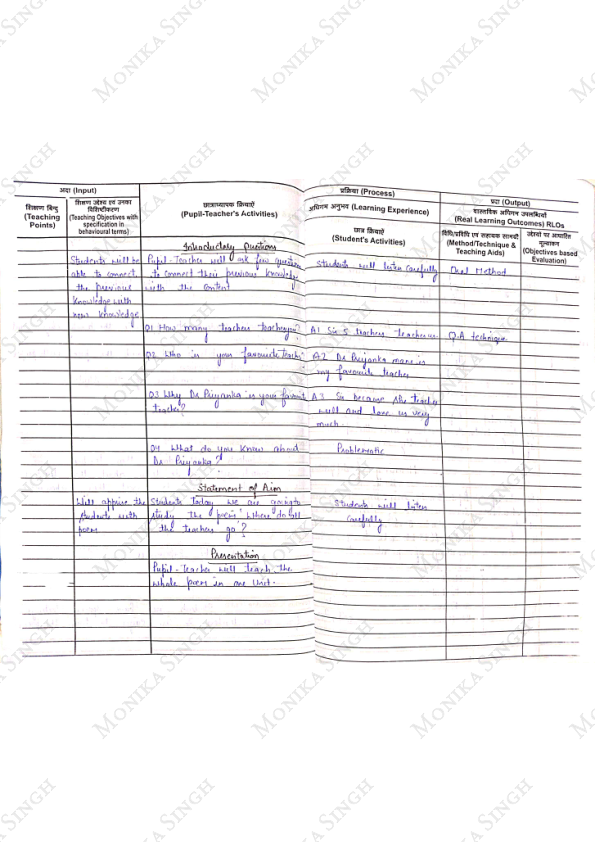 अदा (Input)
शिक्षण बिन्दु
(Teaching
Points)
शिक्षण उद्देश्य एवं उनका
विशिष्टीकरण
(Teaching Objectives with
specification in
behavioural terms)
छात्राध्यापक क्रियाऐं
(Pupil-Teacher's Activities)
प्रक्रिया (Process)
अधिगम अनुभव (Learning Experience)
छात्र क्रियाऐं
(Student's Activities)
प्रदा (Output)
वास्तविक अधिगम उपलब्धियाँ
(Real Learning Outcomes) RLOs
विधि/प्रविधि एवं सहायक सामग्री
(Method/Technique &
Teaching Aids)
उद्देश्यों पर आधारित
मूल्यांकन
(Objectives based
Evaluation)
Introductory Questions
Students will be
able to connect
the previous
knowledge with
new knowledge
Pupil-Teacher will ask few question
to connect their previous knowledge
with the content
Students will listen carefully
Oral Method
Q1 How many teachers teaches you?
A1 Sir 5 teachers teaches us
Q.A technique
Q2 Who is your favourite teacher
A2 Dr Priyanka mam is
my favourite teacher
Q3 Why Dr Priyanka is your favorit
teacher?
A3 Sir because she teach
well and love us very
much.
Q4 What do you know about
Dr Priyanka?
Problematic
Statement of Aim
Will apprise the
students with
poem
Students today we are going to
study the poem 'Where do all
the teachers go'?
Students will listen
carefully
Presentation
Pupil-Teacher will teach the
whole poem in one Unit.
MONIKA SINGH